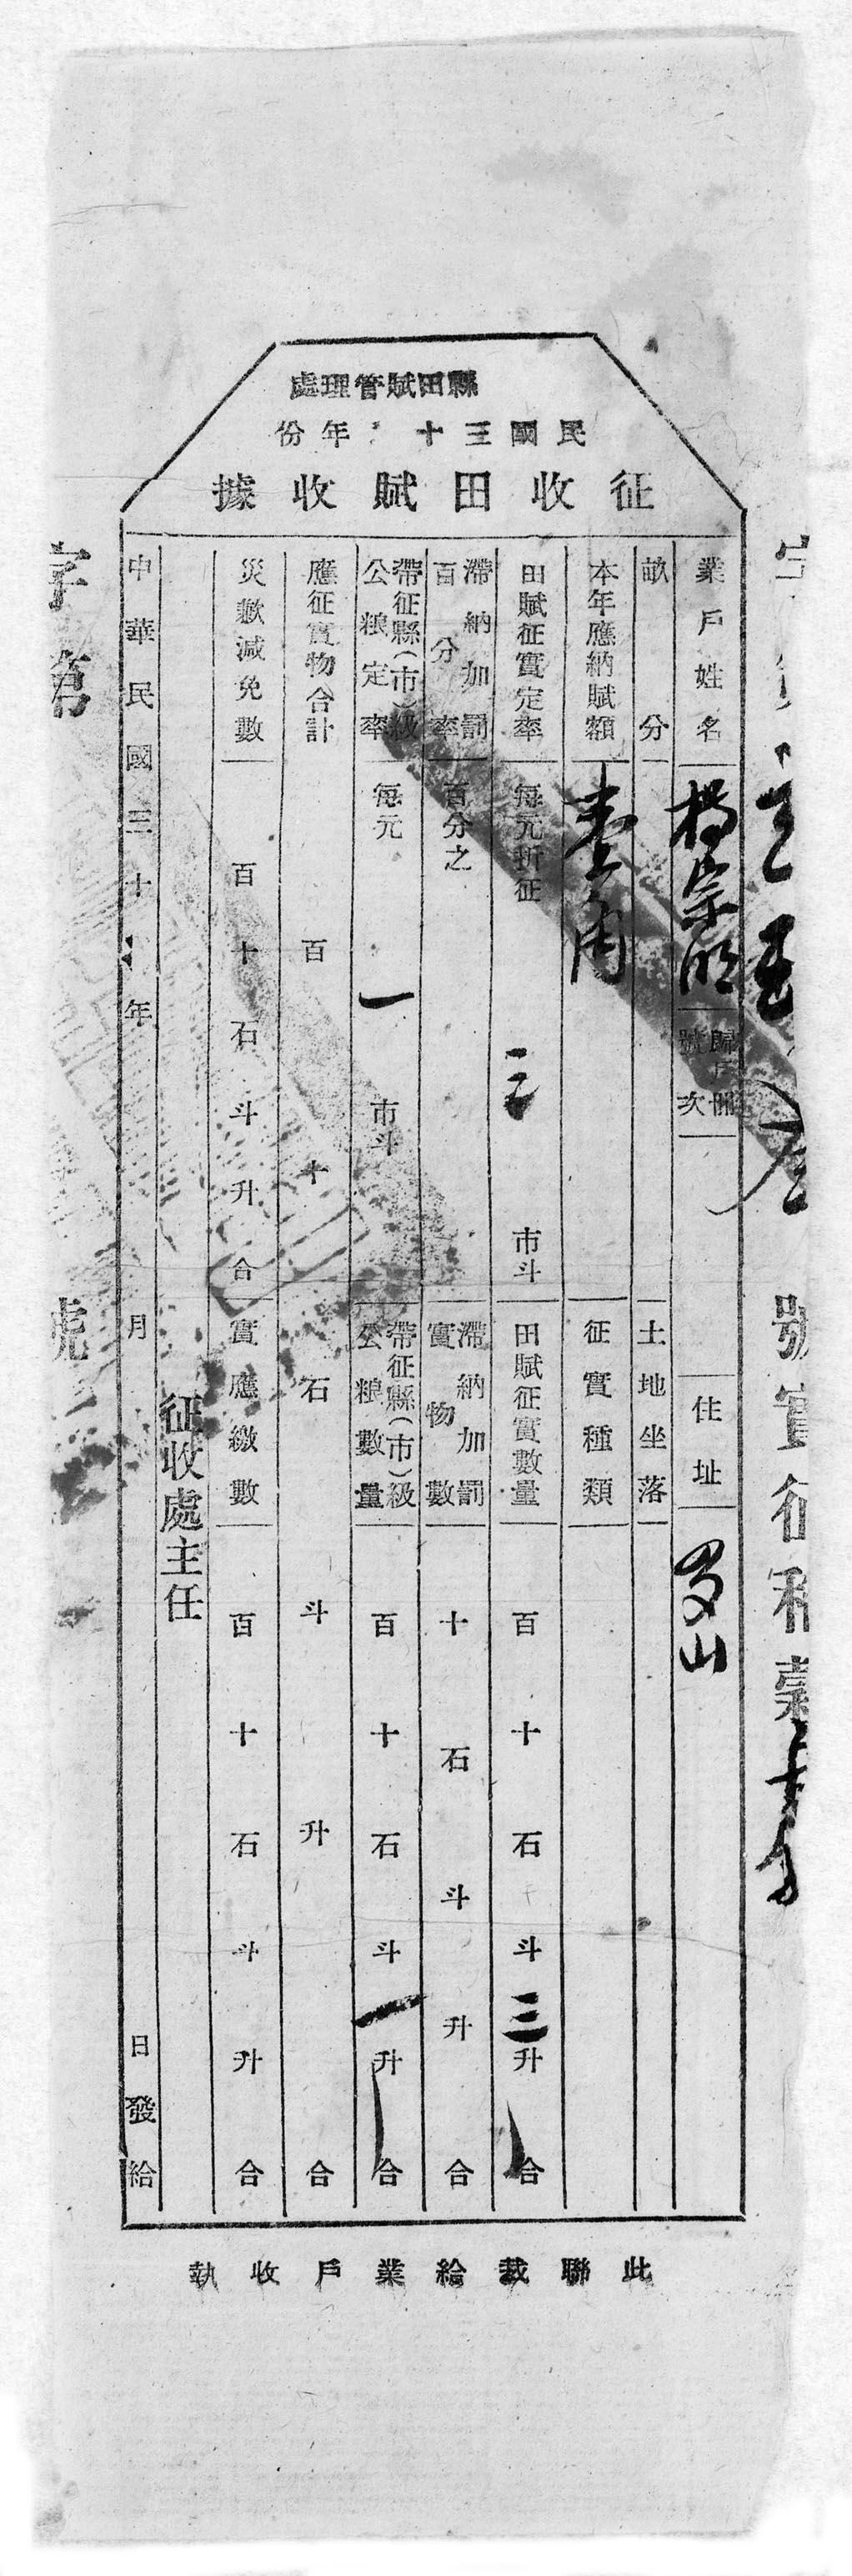 縣田賦管理處
民國三十 年份
征收田賦收據
號實征稻穀
業戶姓名 楊宗明 歸戶冊號次 住址 羅山
畝分 土地坐落
本年應納賦額 壹角 征實種類
田賦征實定率 每元折征 三 市斗 田賦征實數量 百十石斗三升合
滯納加罰百分率 百分之 滯納加罰實物數 十石斗升合
帶征縣(市)級公粮定率 每元 一 市斗 帶征縣(市)級公粮數量 百十石斗一升合
應征實物合計 百十石斗升合
災歉減免數 百十石斗升合 實應繳數 百十石斗升合
征收處主任
中華民國三十 年 月 日發給
字第 號
此聯裁給業戶收執